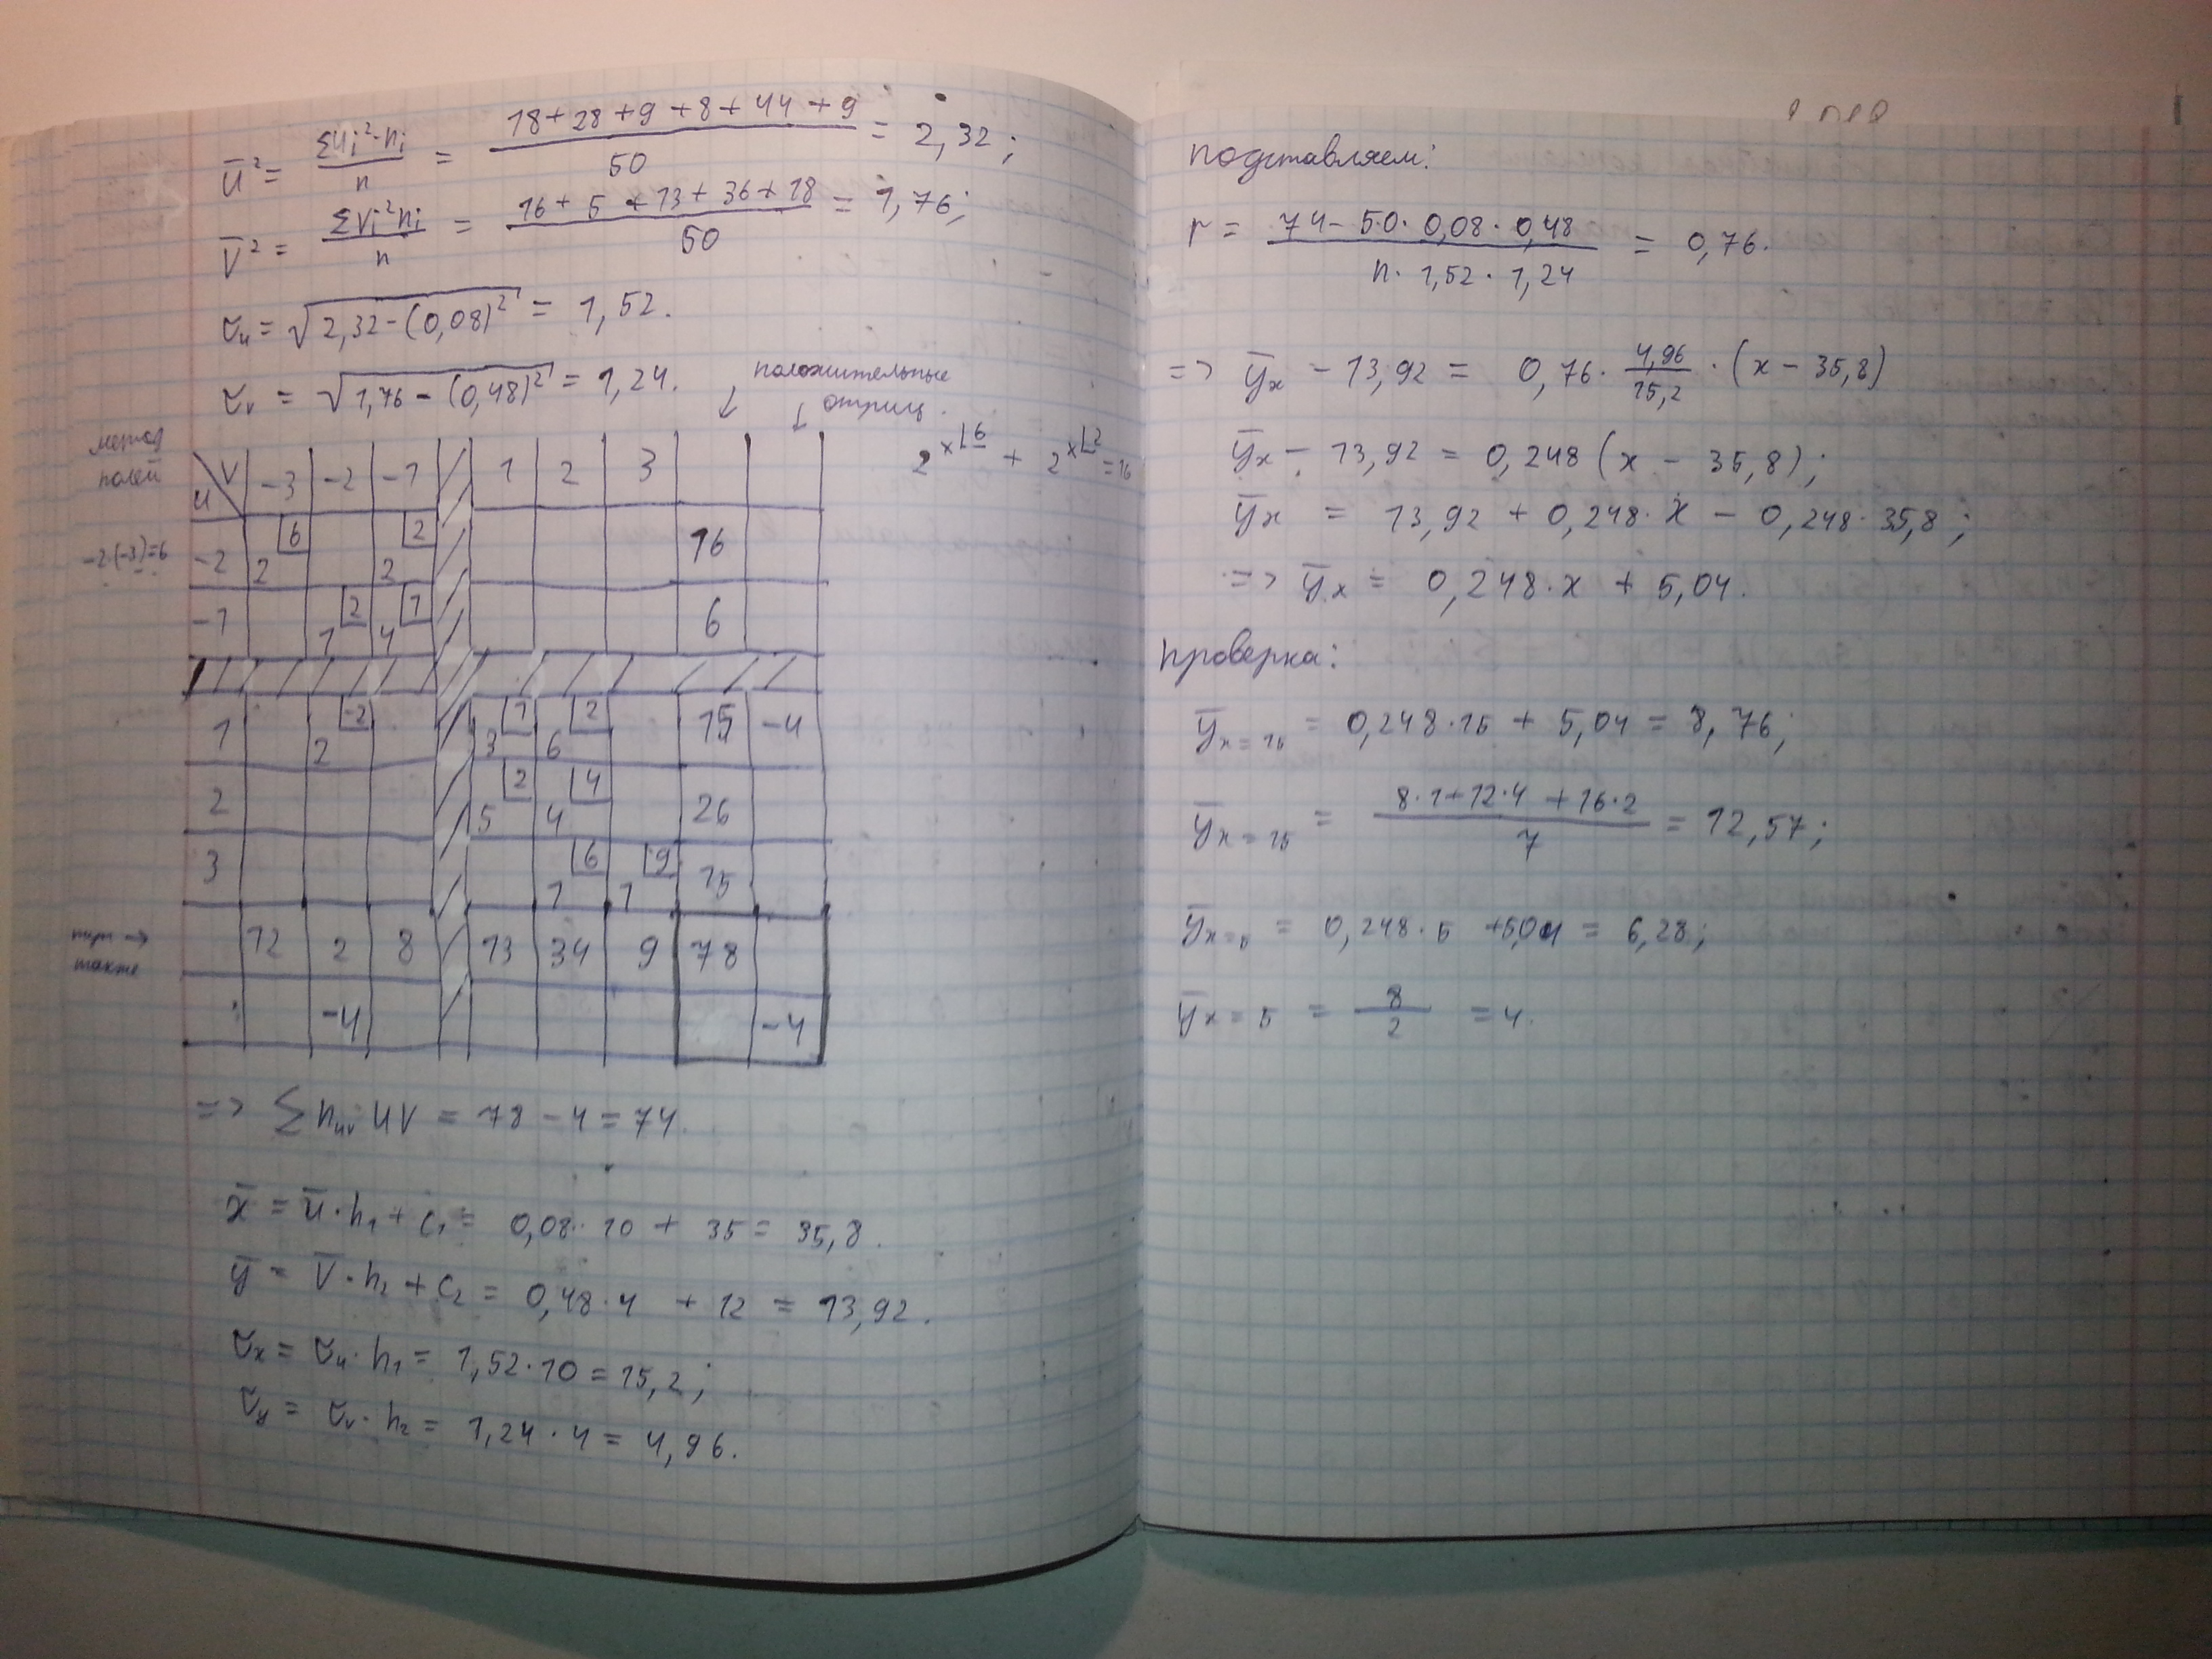 ū² = Σuᵢ²·nᵢ / n = 18+28+9+8+44+9 / 50 = 2,32;
V̄² = ΣVᵢ²nᵢ / n = 16+5+13+36+18 / 50 = 1,76;
σu = √(2,32-(0,08)²) = 1,52.
σv = √(1,76-(0,48)²) = 1,24.
положительные
отриц.
метод
полей
2 x 6 + 2 x 2 = 16
u \ V -3 -2 -1 1 2 3
-2·(-3)=6
-2 2 6 2 2 16
-1 1 2 4 1 6
1 2 -2 3 1 6 2 15 -4
2 5 2 4 4 26
3 1 6 1 9 15
также
12 2 8 13 34 9 78
-4 -4
=> Σnuv uV = 78-4 = 74.
x̄ = ū·h₁ + c₁ = 0,08·10 + 35 = 35,8.
ȳ = V̄·h₂ + c₂ = 0,48·4 + 12 = 13,92.
σx = σu·h₁ = 1,52·10 = 15,2;
σy = σv·h₂ = 1,24·4 = 4,96.
подставляем:
r = 74-50·0,08·0,48 / n·1,52·1,24 = 0,76.
=> ȳx - 13,92 = 0,76·4,96/15,2·(x-35,8)
ȳx - 13,92 = 0,248(x-35,8);
ȳx = 13,92 + 0,248·x - 0,248·35,8;
=> ȳx = 0,248·x + 5,04.
проверка:
ȳx=15 = 0,248·15 + 5,04 = 8,76;
ȳx=15 = 8·1+12·4+16·2 / 7 = 12,57;
ȳx=5 = 0,248·5 + 5,04 = 6,28;
ȳx=5 = 8/2 = 4.